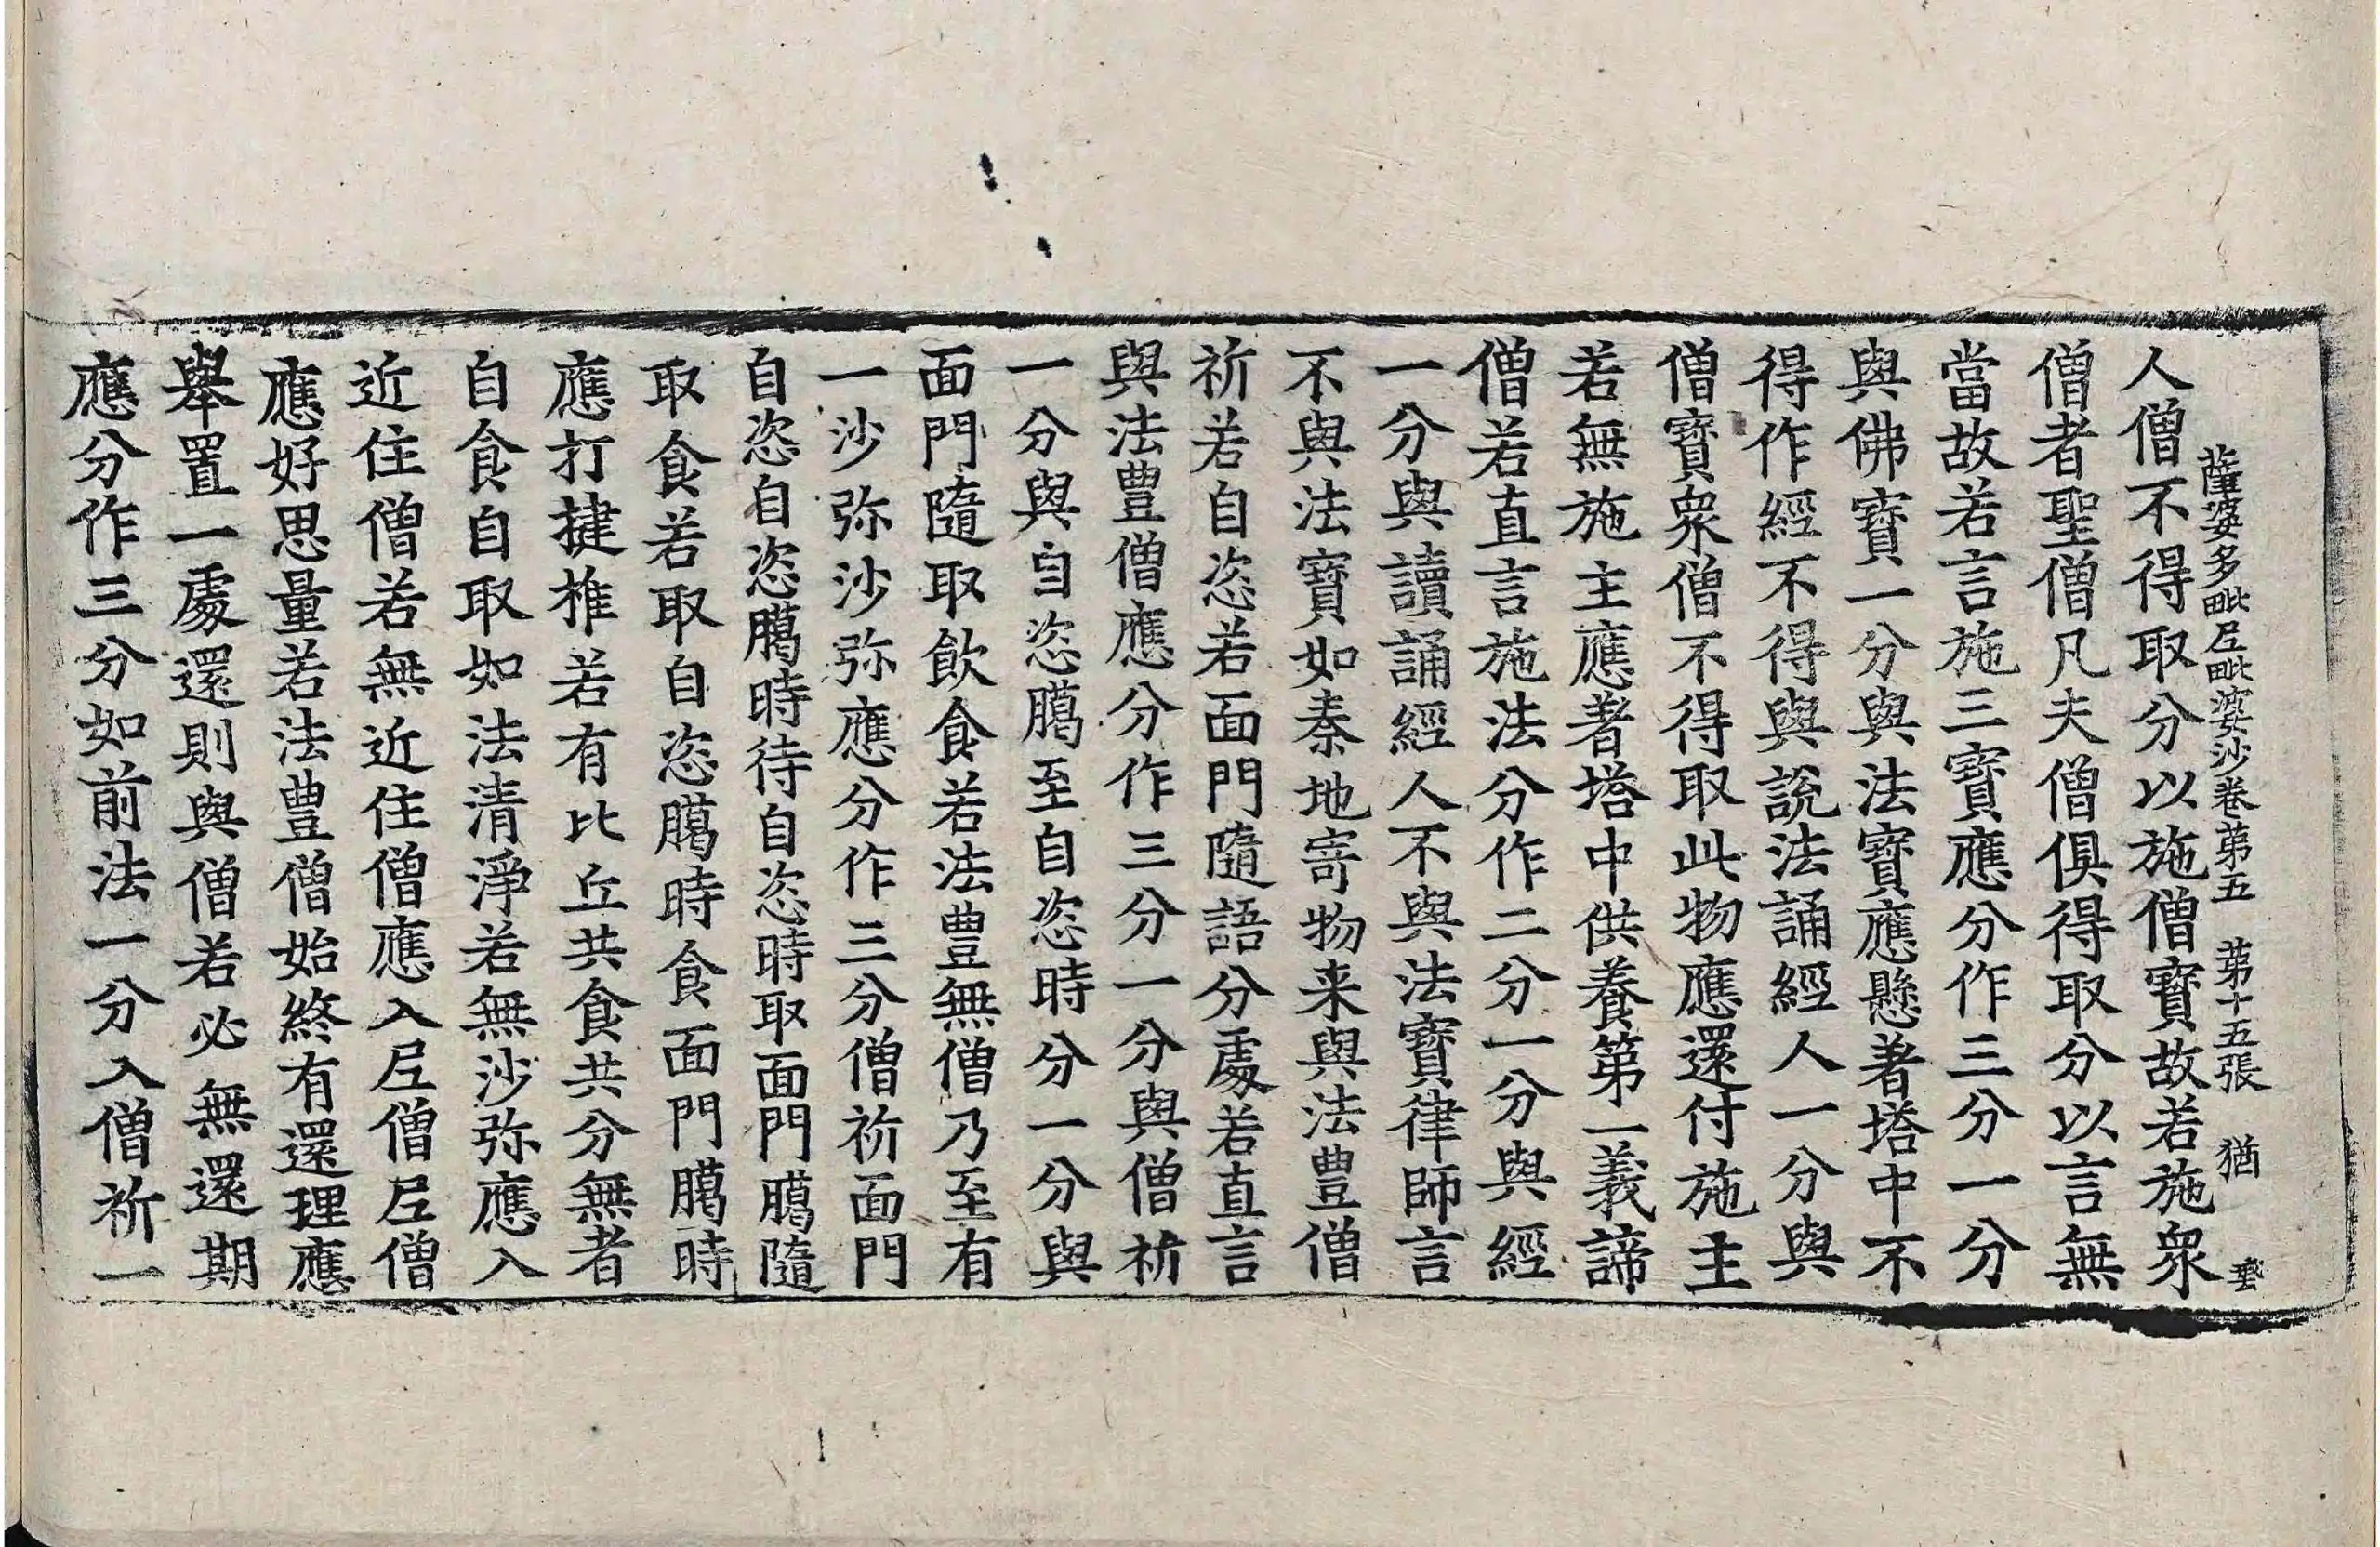 薩婆多毗尼毗婆沙卷第五 第十五張 猶
人僧不得取分以施僧寶故若施衆
僧者聖僧凡夫僧俱得取分以言無
當故若言施三寶應分作三分一分
與佛寶一分與法寶應懸著塔中不
得作經不得與說法誦經人一分與
僧寶衆僧不得取此物應還付施主
若無施主應著塔中供養第一義諦
僧若直言施法分作二分一分與經
一分與讀誦經人不與法寶律師言
不與法寶如秦地寄物来與法豊僧
祈若自恣若面門隨語分處若直言
與法豊僧應分作三分一分與僧祈
一分與自恣臈至自恣時分一分與
面門隨取飲食若法豊無僧乃至有
一沙弥沙弥應分作三分僧祈面門
自恣自恣臈時待自恣時取面門臈隨
取食若取自恣臈時食面門臈時
應打揵椎若有比丘共食共分無者
自食自取如法清淨若無沙弥應入
近住僧若無近住僧應入尼僧尼僧
應好思量若法豊僧始終有還理應
舉置一處還則與僧若必無還期
應分作三分如前法一分入僧祈一